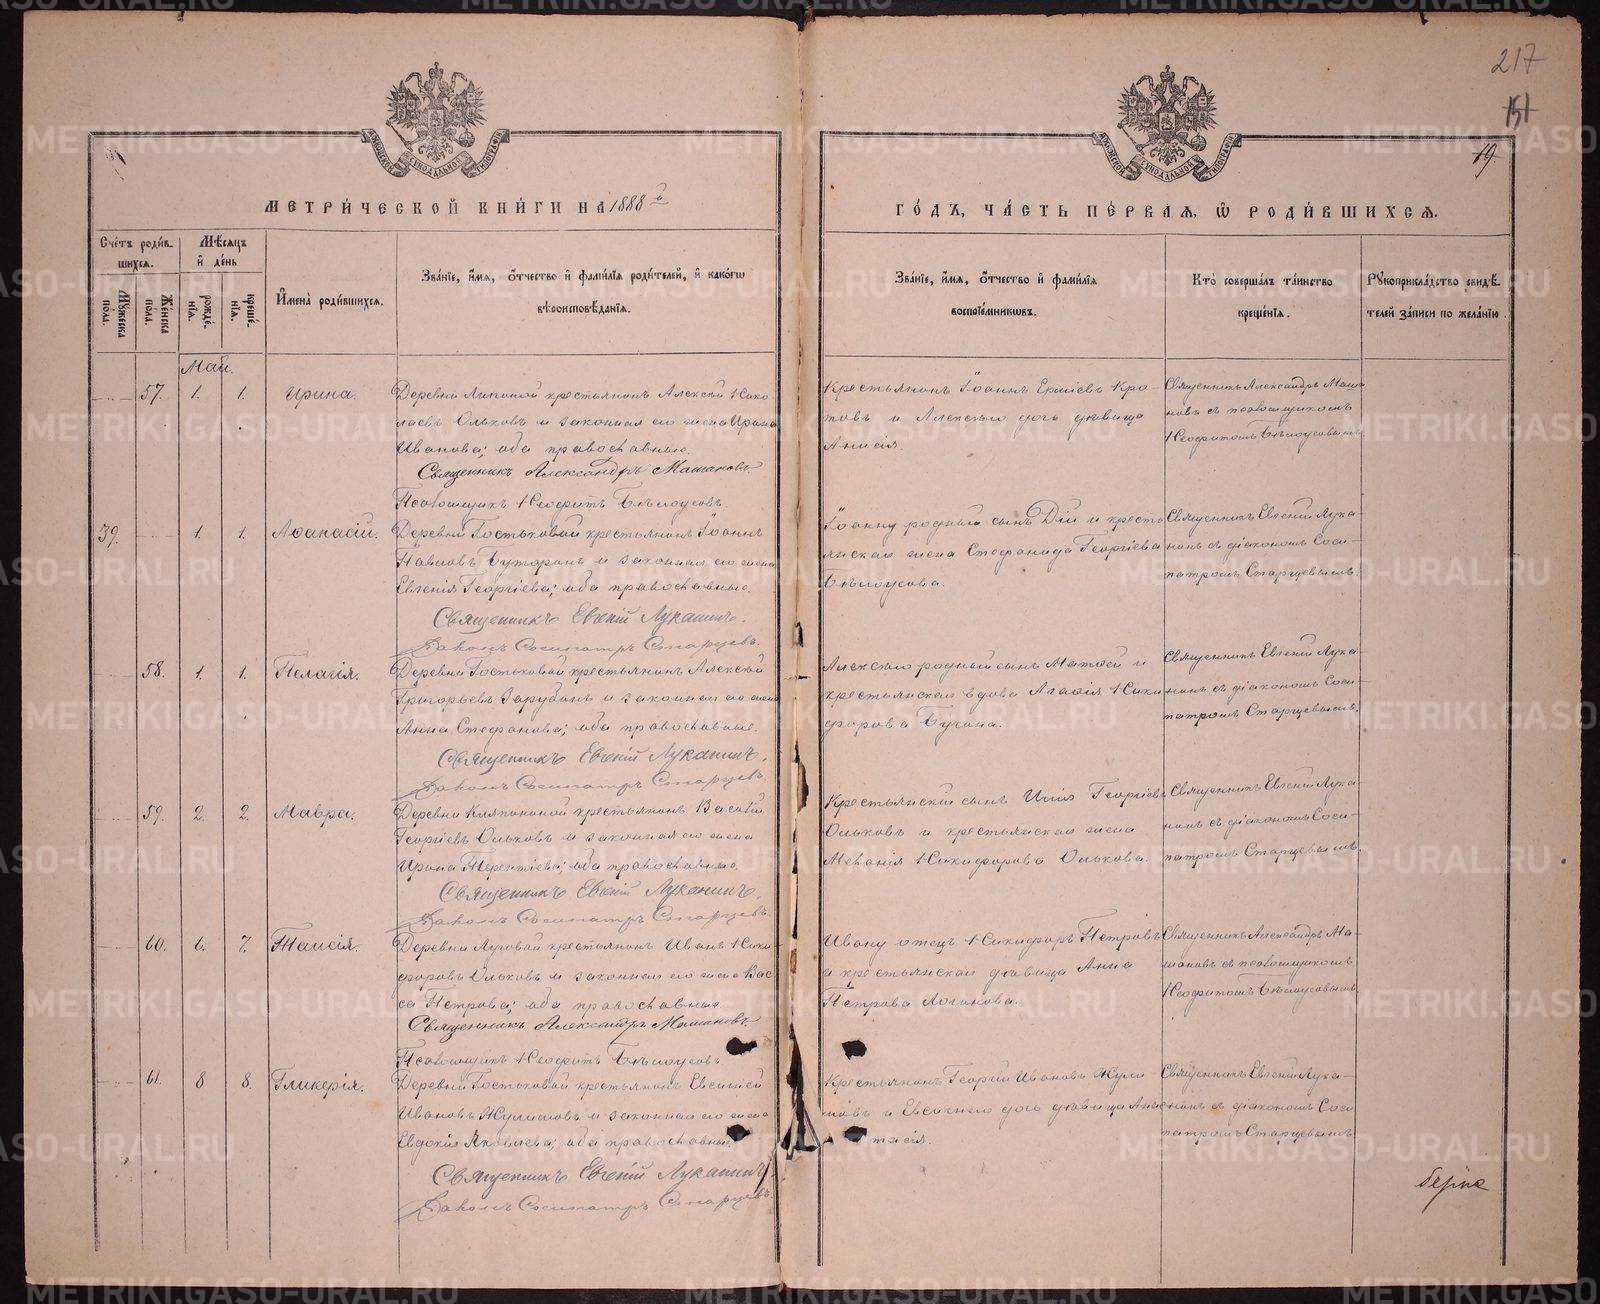 217
151
19.
МЕТРИ́ЧЕСКОЙ КНИ́ГИ НА 1888 й
ГО́ДЪ, ЧА́СТЬ ПЕ́РВАЯ, Ѡ҆ РОДИ́ВШИХСЯ.
Сче́тъ роди́в-
шихся.
Мѣ́сяцъ
и҆ де́нь
Му́жеска
пола.
Же́нска
пола.
рожде́-
нїя.
креще́-
нїя.
И҆мена̀ роди́вшихся.
Зва́нїе, и҆́мя, ѻ҆́тчество и҆ фами́лїя роди́телей, и҆ како́гѡ
вѣроисповѣ́данїя.
Зва́нїе, и҆́мя, ѻ҆́тчество и҆ фами́лїя
воспрїе́мникѡвъ.
Кто̀ соверша́лъ та́инство
креще́нїя.
Рꙋкоприкла́дство свидѣ́-
телей за́писи по жела́нїю
Май.
57. 1. 1. Ирина.
Деревни Липиной крестьянинъ Алексѣй Нико-
лаевъ Ольковъ и законная его жена Ирина
Иванова; оба православные.
Священникъ Александръ Машановъ
Псаломщикъ Неофитъ Бѣлоусовъ
Крестьянинъ Іоаннъ Ермiевъ Кро-
товъ и Алексѣю дочь дѣвица
Анисiя.
Священникъ Александръ Маша-
новъ съ псаломщикомъ
Неофитомъ Бѣлоусовымъ
39. 1. 1. Аѳанасій.
Деревни Гостьковой крестьянинъ Іоаннъ
Павловъ Буторинъ и законная его жена
Евгенія Георгіева; оба православные.
Священникъ Евгеній Луканинъ.
Діаконъ Сосипатръ Старцевъ.
Іоанну родный сынъ Дій и кресть-
янская жена Стефанида Георгіева
Бѣлоусова.
Священникъ Евгеній Лука-
нинъ съ діакономъ Соси-
патромъ Старцевымъ.
58. 1. 1. Пелагія.
Деревни Гостьковой крестьянинъ Алексѣй
Григорьевъ Зарубинъ и законная его жена
Анна Стефанова; оба православные.
Священникъ Евгеній Луканинъ.
Діаконъ Сосипатръ Старцевъ.
Алексѣю родный сынъ Матѳей и
крестьянская вдова Агаѳія Ники-
форова Бунина.
Священникъ Евгеній Лука-
нинъ съ діакономъ Соси-
патромъ Старцевымъ.
59. 2. 2. Мавра.
Деревни Кляпининой крестьянинъ Василій
Георгіевъ Ольковъ и законная его жена
Ирина Терентіева; оба православные.
Священникъ Евгеній Луканинъ.
Діаконъ Сосипатръ Старцевъ.
Крестьянскій сынъ Илія Георгіевъ
Ольковъ и крестьянская жена
Меланія Никифорова Олькова.
Священникъ Евгеній Лука-
нинъ съ діакономъ Соси-
патромъ Старцевымъ.
60. 6. 7. Таисія.
Деревни Луговой крестьянинъ Иванъ Ники-
форовъ Ольковъ и законная его жена Вас-
са Петрова; оба православные.
Священникъ Александръ Машановъ
Псаломщикъ Неофитъ Бѣлоусовъ
Ивану отецъ Никифоръ Петровъ
и крестьянская дѣвица Анна
Петрова Логинова.
Священникъ Александръ Ма-
шановъ съ псаломщикомъ
Неофитомъ Бѣлоусовымъ
61. 8 8. Гликерія.
Деревни Гостьковой крестьянинъ Евсигней
Ивановъ Жулимовъ и законная его жена
Евдокія Яковлева; оба православные.
Священникъ Евгеній Луканинъ
Діаконъ Сосипатръ Старцевъ.
Крестьянинъ Георгій Ивановъ Жули-
мовъ и Евсигнею дочь дѣвица Анас-
тасія.
Священникъ Евгеній Лука-
нинъ съ діакономъ Соси-
патромъ Старцевымъ.
METRIKI.GASO-URAL.RU